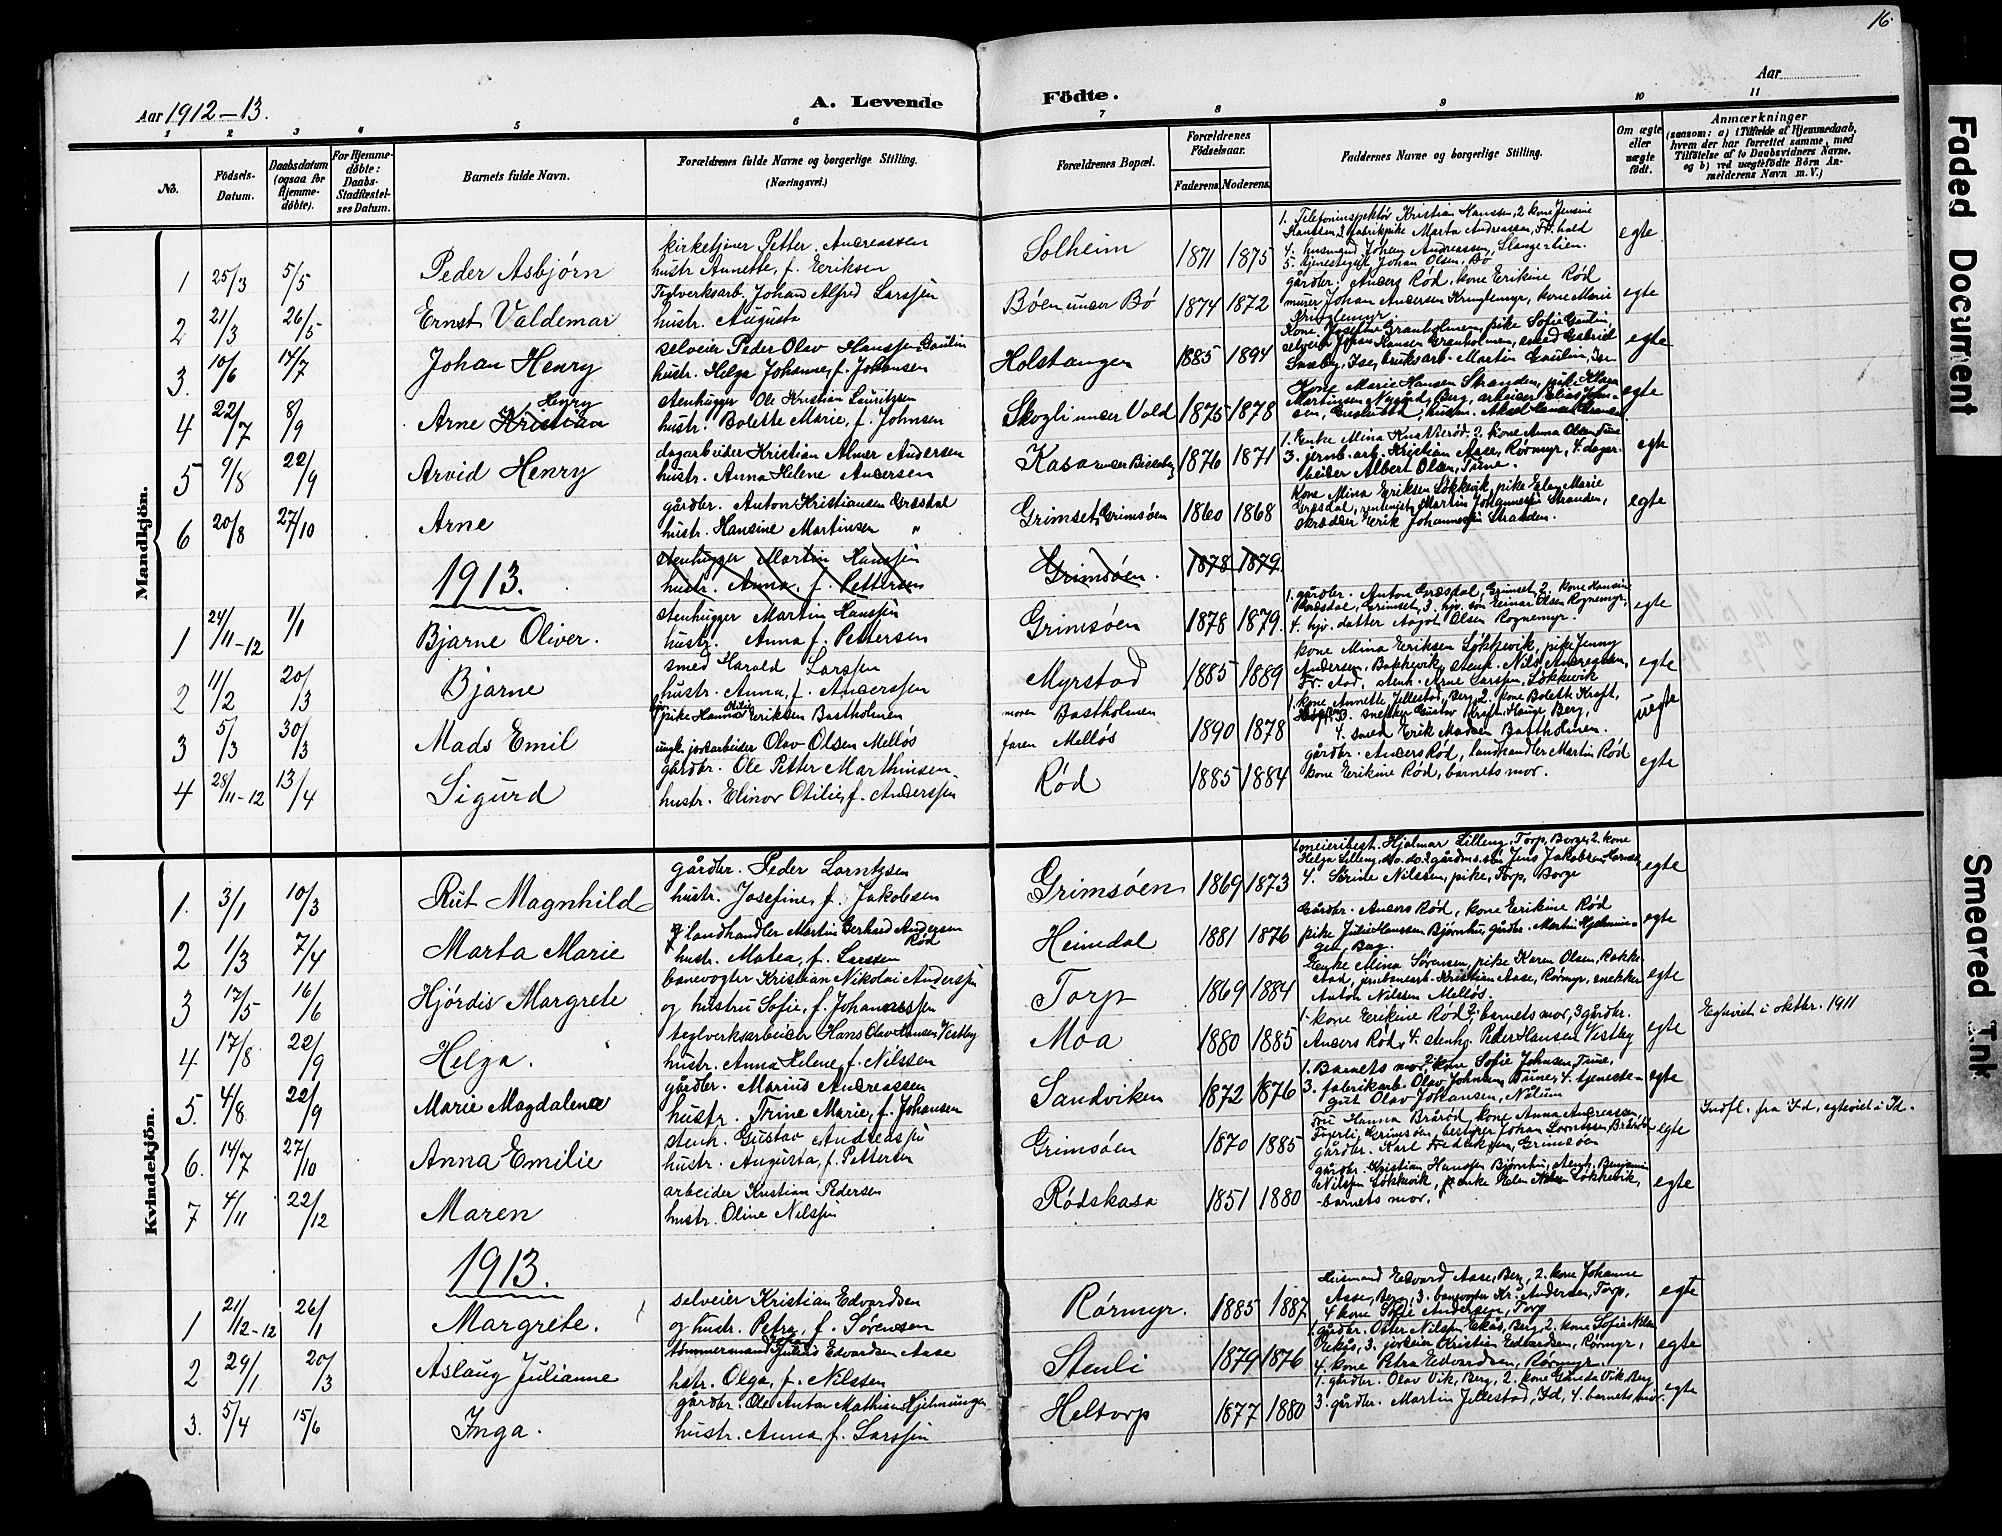 16.
Aar 1912-13.
A. Levende Födte.
Aar
1 2 3 4 5 6 7 8 9 10 11
No.
Födsels-Datum.
Daabsdatum (ogsaa for Hjemme-döbte).
For Hjemme-döbte: Daabs-Stadfæstel-ses Datum.
Barnets fulde Navn.
Forældrenes fulde Navne og borgerlige Stilling. (Næringsvei.)
Forældrenes Bopæl.
Forældrenes Födselsaar.
Faderens. Moderens.
Faddernes Navne og borgerlige Stilling.
Om ægte eller uægte födt.
Anmærkninger
(saasom: a) i Tilfælde af Hjemmedaab, hvem der har forrettet samme, med Tilföielse af to Daabsvidners Navne, og b) ved uægtefödte Börn An-melderens Navn m. V.)
Mandkjön.
1 25/3 5/5 Peder Asbjørn kirketjener Petter Andreassen
hustr Annette, f. Eriksen Solheim 1871 1875 1. Telefoninspektør Kristian Hanssen, 2 kone Jensine
Hanssen, 3 fabrikpike Marta Andreassen, Fr.hald
4. husmand Johan Andreassen, Slangerlien.
5. tjenestegut Johan Olsen, Bø egte
2 21/3 26/5 Ernst Valdemar Teglverksarb. Johan Alfred Larssen
hustr. Augusta Bøen under Bø 1874 1872 gårdbr. Anders Rød, kone Erikine Rød
murer Johan Andersen Kringlemyr, kone Marie
Kringlemyr. egte
3. 10/6 14/7 Johan Henry selveier Peder Olav Hanssen Gaulin
hustr. Helga Johanne, f. Johansen Holstangen 1885 1894 Kone Josefine Granholmen, pike Sofie Gaulin,
selveier Johan Hansen Granholmen, smed Gabriel
Smeby, Ise, bruksarb. Martin Gaulin, Ise egte
4 22/7 8/9 Arne Kristian Henry stenhugger Ole Kristian Lauritzen
hustr. Bolette Marie, f. Johnsen Skogli under Vold 1875 1878 Kone Marie Hansen Stranden, pike Klara
Martinsen Nygård, Berg, arbeider Elias egte
5 9/8 22/9 Arvid Henry dagarbeider Kristian Almer Andersen
hustr. Anna Helene Andersen Kasa under Bisseberg 1876 1871 1. Enke Mina Knatterød. 2. kone Anna Olsen Tune
3. jernb.arb. Kristian Aase, Rørmyr, 4. dagar-
beider Albert Olsen, Tune. egte
6 20/8 27/10 Arne gårdbr. Anton Kristiansen Græsdal
hustr. Hansine Martinsen " Grimset, Grimsøen 1860 1868 Kone Mina Eriksen Løkkevik, pike Marie
Græsdal, Martin Johannessen Stranden,
skrædder Erik Johannessen Stranden. egte
1913.
stenhugger Martin Hanssen
hustr. Anna, f. Pettersen Grimsøen. 1878 1879
1 24/11-12 1/1 Bjarne Oliver. stenhugger Martin Hanssen
hustr. Anna f. Pettersen Grimsøen 1878 1879. 1. gårdbr. Anton Græsdal, Grimset, 2. kone Hansine
Græsdal, Grimset, 3. hjv. søn Einar Olsen Rognemyr,
4. hjv. datter Aagot Olsen Rognemyr. egte
2 11/2 20/3 Bjarne smed Harald Larssen
hustr. Anna, f. Anderssen Myrstad 1885 1889 kone Mina Eriksen Løkkevik, pike Jenny
Andersen, Bakkevik, stenh. Nils Andreassen,
Fr. stad, stenh. Arne Larssen, Løkkevik egte
3 5/3 30/3 Mads Emil pike Hanna Otilie Eriksen Bastholmen
ungk. jordarbeider Olav Olsen Melløs moren Bastholmen
faren Melløs 1890 1878 1. kone Annette Jellestad, Berg, 2 kone Bolette Kraft,
3. snekker Gustav Kraft, Hauge, Berg,
4. smed Erik Madsen Bastholmen. uegte
4 28/11-12 13/4 Sigurd gårdbr. Ole Petter Marthinsen.
hustr. Elinor Otilie, f. Anderssen Rød 1885 1884 gårdbr. Anders Rød, landhandler Martin Rød
kone Erikine Rød, barnets mor. egte
Kvindekjön.
1. 3/1 10/3 Rut Magnhild gårdbr. Peder Larntzen
hustr. Josefine, f. Jakobsen Grimsøen 1869 1873 Hjalmar Lilleng, Torp, Borge, 2. kone
Helga Lilleng, do. do. 3 gårdms. søn Jens Jakobsen
4. Serine Nilssen, pike, Torp, Borge egte
2 1/3 7/4 Marta Marie landhandler Martin Gerhard Andersen
Rød
hustr. Matea, f. Larssen Heimdal 1881 1876 Gårdbr. Anders Rød, kone Erikine Rød
pike Julie Hanssen Bjørntu, gårdbr. Martin Hjelmun-
gen, Berg. egte
3 17/5 16/6 Hjørdis Margrete banevogter Kristian Nikolai Anderssen
og hustru Sofie, f. Johanssen Torp 1869 1884 Enke Mina Sørensen, pike Karen Olsen, Rokke-
stad, jernbanearb. Kristian Aase, Rørmyr, snekker
Anton Nilssen Melløs. egte
4 17/8 22/9 Helga. teglverksarbeider Hans Olav Hansen Vestby
hustr. Anna Helene, f. Nilssen Moa 1880 1885 1. kone Erikine Rød 2. barnets mor, 3 gårdbr.
Anders Rød, 4. stenh. Peder Hansen Vestby egte Egteviet i oktbr. 1911
5. 4/8 22/9 Marie Magdalena gårdbr. Marius Andreassen
hustr. Trine Marie, f. Johansen Sandviken 1872 1876 1. Barnets mor 2. kone Sofie Johnsen, Tune,
3. fabrikarb. Olav Johnsen, Tune, 4. tjeneste-
gut Olav Johansen, Nålum egte
6. 14/7 27/10 Anna Emilie stenh. Gustav Andreassen
hustr. Augusta, f. Pettersen Grimsøen 1870 1885 Fru Hanna Brårød, kone Anna Andreassen,
Grimsøen, bestyrer Johan Lorntssen, Brårød
gårdbr. Karl Fredriksen, Grimsøen egte Indfl. fra Id, egteviet i Id.
7 4/11 22/12 Maren arbeider Kristian Pedersen
hustr. Oline Nilssen Rødskasa 1851 1880 gårdbr. Kristian Hanssen Bjørntu, stenh. Benjamin
Nilssen Løkkevik, enke Helen Nilsen Løkkevik,
barnets mor. egte
1913.
1 21/12-12 26/1 Margrete. selveier Kristian Edvardsen
og hustr. Petra, f. Sørensen Rørmyr. 1885 1887 Husmand Edvard Aase, Berg, 2. kone Johanne
Aase, Berg, 3. banevogter Kr. Andersen, Torp,
4 kone Sofie Andersen, Torp egte
2 29/1 20/3 Aslaug Julianne tømmermand Julius Edvardsen Aase
hstr. Olga, f. Nilssen Stenli 1879 1876 1. gårdbr. Otter Nilsen Ekås, Berg, 2. kone Sofie Nilsen
Ekås, 3. jordeier Kristian Edvardsen, Rørmyr,
4. kone Petra Edvardsen, Rørmyr. egte
3. 5/4 15/6 Inga. gårdbr. Ole Anton Mathisen Hjelmungen
hustr. Anna f. Larssen Heltorp 1877 1880 1. gårdbr. Olav Vik, Berg, 2. kone Gunda Vik, Berg
3. gårdbr. Martin Jellestad, Id, 4. barnets mor. egte
Faded Document
Smeared Ink